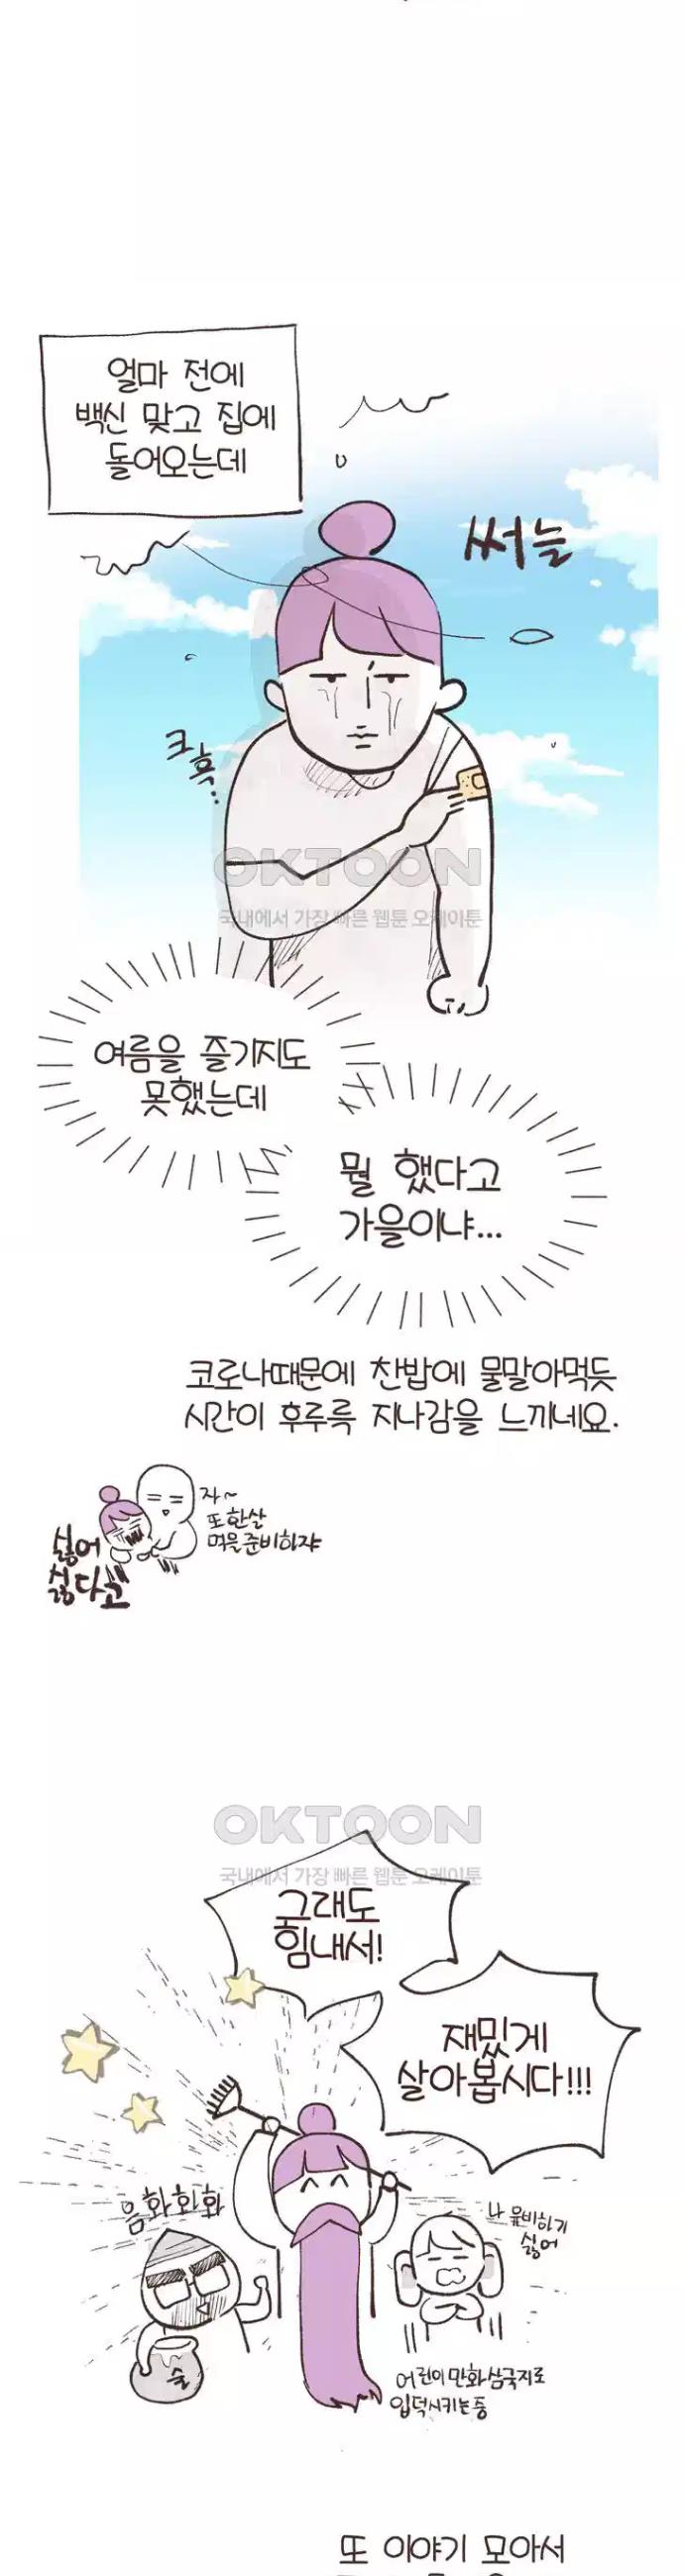 얼마 전에
백신 맞고 집에
돌어오는데
써늘
크흑..
OKTOON
국내에서 가장 빠른 웹툰 오케이툰
여름을 즐기지도
못했는데
뭘 했다고
가을이냐...
코로나때문에 찬밥에 물말아먹듯
시간이 후루륵 지나감을 느끼네요.
자~
또 한살
먹을준비하쟈
싫어
싫다고
OKTOON
국내에서 가장 빠른 웹툰 오케이툰
그래도
힘내서!
재밌게
살아봅시다!!!
음화화화
나 윶비하기
싫어
술
어린이 만화삼국지로
입덕시키는중
또 이야기 모아서